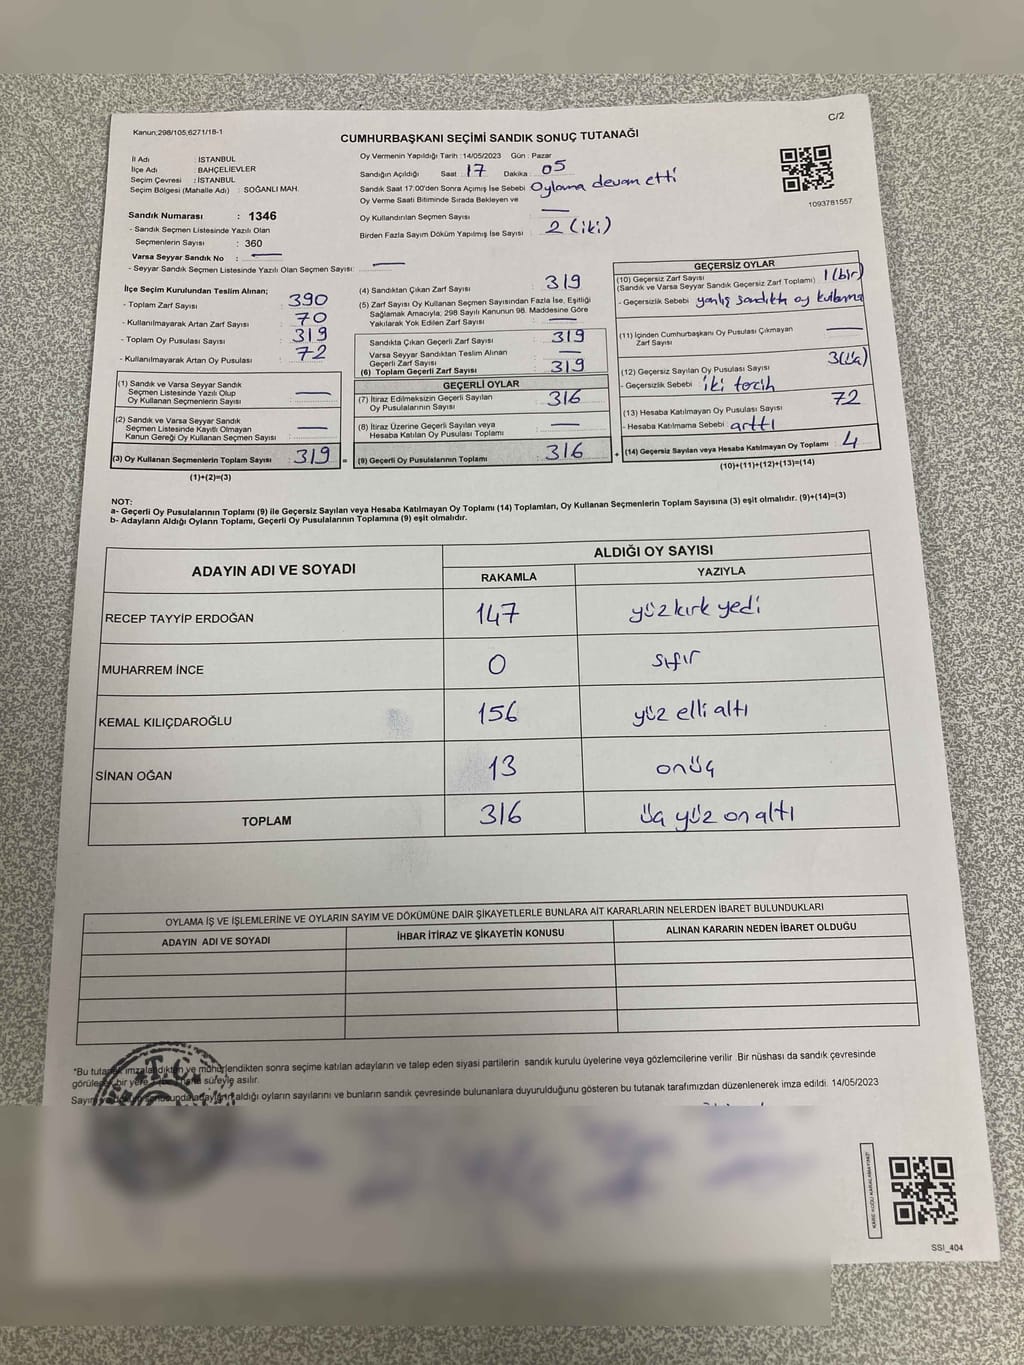 C/2
Kanun;298/105;6271/18-1
CUMHURBAŞKANI SEÇİMİ SANDIK SONUÇ TUTANAĞI
İl Adı : İSTANBUL
İlçe Adı : BAHÇELİEVLER
Seçim Çevresi : İSTANBUL
Seçim Bölgesi (Mahalle Adı) : SOĞANLI MAH.
Sandık Numarası : 1346
- Sandık Seçmen Listesinde Yazılı Olan
Seçmenlerin Sayısı : 360
Varsa Seyyar Sandık No :
- Seyyar Sandık Seçmen Listesinde Yazılı Olan Seçmen Sayısı:
Oy Vermenin Yapıldığı Tarih :14/05/2023 Gün : Pazar
Sandığın Açıldığı Saat 17 Dakika 05
Sandık Saat 17:00'den Sonra Açımış İse Sebebi Oylama devam etti
Oy Verme Saati Bitiminde Sırada Bekleyen ve
Oy Kullandırılan Seçmen Sayısı
Birden Fazla Sayım Döküm Yapılmış İse Sayısı 2 (iki)
1093781557
İlçe Seçim Kurulundan Teslim Alınan;
- Toplam Zarf Sayısı 390
- Kullanılmayarak Artan Zarf Sayısı 70
- Toplam Oy Pusulası Sayısı 319
- Kullanılmayarak Artan Oy Pusulası 72
(1) Sandık ve Varsa Seyyar Sandık
Seçmen Listesinde Yazılı Olup
Oy Kullanan Seçmenlerin Sayısı
(2) Sandık ve Varsa Seyyar Sandık
Seçmen Listesinde Kayıtlı Olmayan
Kanun Gereği Oy Kullanan Seçmen Sayısı
(3) Oy Kullanan Seçmenlerin Toplam Sayısı : 319 =
(1)+(2)=(3)
(4) Sandıktan Çıkan Zarf Sayısı 319
(5) Zarf Sayısı Oy Kullanan Seçmen Sayısından Fazla İse, Eşitliği
Sağlamak Amacıyla, 298 Sayılı Kanunun 98. Maddesine Göre
Yakılarak Yok Edilen Zarf Sayısı
Sandıkta Çıkan Geçerli Zarf Sayısı : 319
Varsa Seyyar Sandıktan Teslim Alınan
Geçerli Zarf Sayısı
(6) Toplam Geçerli Zarf Sayısı 319
GEÇERLİ OYLAR
(7) İtiraz Edilmeksizin Geçerli Sayılan
Oy Pusulalarının Sayısı : 316
(8) İtiraz Üzerine Geçerli Sayılan veya
Hesaba Katılan Oy Pusulası Toplamı
(9) Geçerli Oy Pusulalarının Toplamı : 316 +
GEÇERSİZ OYLAR
(10) Geçersiz Zarf Sayısı
(Sandık ve Varsa Seyyar Sandık Geçersiz Zarf Toplamı) 1 (bir)
- Geçersizlik Sebebi yanlış sandıkta oy kullanma
(11) İçinden Cumhurbaşkanı Oy Pusulası Çıkmayan
Zarf Sayısı
(12) Geçersiz Sayılan Oy Pusulası Sayısı
- Geçersizlik Sebebi iki tercih
(13) Hesaba Katılmayan Oy Pusulası Sayısı 72
- Hesaba Katılmama Sebebi arttı
(14) Geçersiz Sayılan veya Hesaba Katılmayan Oy Toplamı : 4
(10)+(11)+(12)+(13)=(14)
NOT:
a- Geçerli Oy Pusulalarının Toplamı (9) ile Geçersiz Sayılan veya Hesaba Katılmayan Oy Toplamı (14) Toplamları, Oy Kullanan Seçmenlerin Toplam Sayısına (3) eşit olmalıdır. (9)+(14)=(3)
b- Adayların Aldığı Oyların Toplamı, Geçerli Oy Pusulalarının Toplamına (9) eşit olmalıdır.
ADAYIN ADI VE SOYADI
ALDIĞI OY SAYISI
RAKAMLA YAZIYLA
RECEP TAYYİP ERDOĞAN 147 yüz kırk yedi
MUHARREM İNCE 0 sıfır
KEMAL KILIÇDAROĞLU 156 yüz elli altı
SİNAN OĞAN 13 onüç
TOPLAM 316 üç yüz on altı
OYLAMA İŞ VE İŞLEMLERİNE VE OYLARIN SAYIM VE DÖKÜMÜNE DAİR ŞİKAYETLERLE BUNLARA AİT KARARLARIN NELERDEN İBARET BULUNDUKLARI
ADAYIN ADI VE SOYADI İHBAR İTİRAZ VE ŞİKAYETİN KONUSU ALINAN KARARIN NEDEN İBARET OLDUĞU
*Bu tutanak imzalandıktan ve mühürlendikten sonra seçime katılan adayların ve talep eden siyasi partilerin sandık kurulu üyelerine veya gözlemcilerine verilir Bir nüshası da sandık çevresinde
görülecek bir yere süreyle asılır.
Sayım aldığı oyların sayılarını ve bunların sandık çevresinde bulunanlara duyurulduğunu gösteren bu tutanak tarafımızdan düzenlenerek imza edildi. 14/05/2023
T.C.
SSI_404